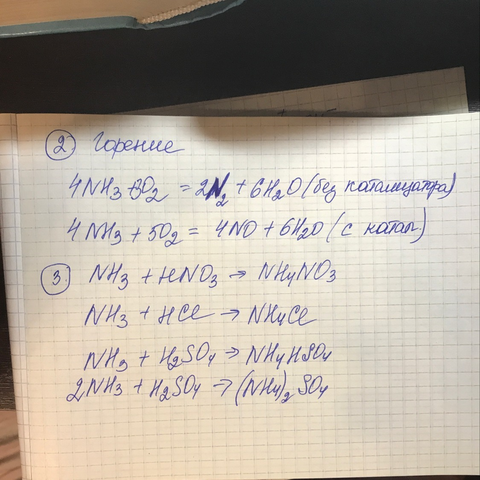 2) Горение
4NH3 + 3O2 = 2N2 + 6H2O (без катализатра)
4NH3 + 5O2 = 4NO + 6H2O (с катал)
3. NH3 + HNO3 → NH4NO3
NH3 + HCl → NH4Cl
NH3 + H2SO4 → NH4HSO4
2NH3 + H2SO4 → (NH4)2SO4